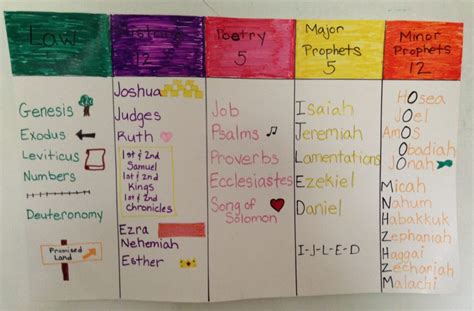 Law
History
12
Poetry
5
Major
Prophets
5
Minor
Prophets
12
Genesis
Exodus
Leviticus
Numbers
Deuteronomy
Promised
Land
Joshua
Judges
Ruth
1st & 2nd
Samuel
1st & 2nd
Kings
1st & 2nd
Chronicles
Ezra
Nehemiah
Esther
Job
Psalms
Proverbs
Ecclesiastes
Song of
Solomon
Isaiah
Jeremiah
Lamentations
Ezekiel
Daniel
I-J-L-E-D
Hosea
Joel
Amos
Obadiah
Jonah
Micah
Nahum
Habakkuk
Zephaniah
Haggai
Zechariah
Malachi